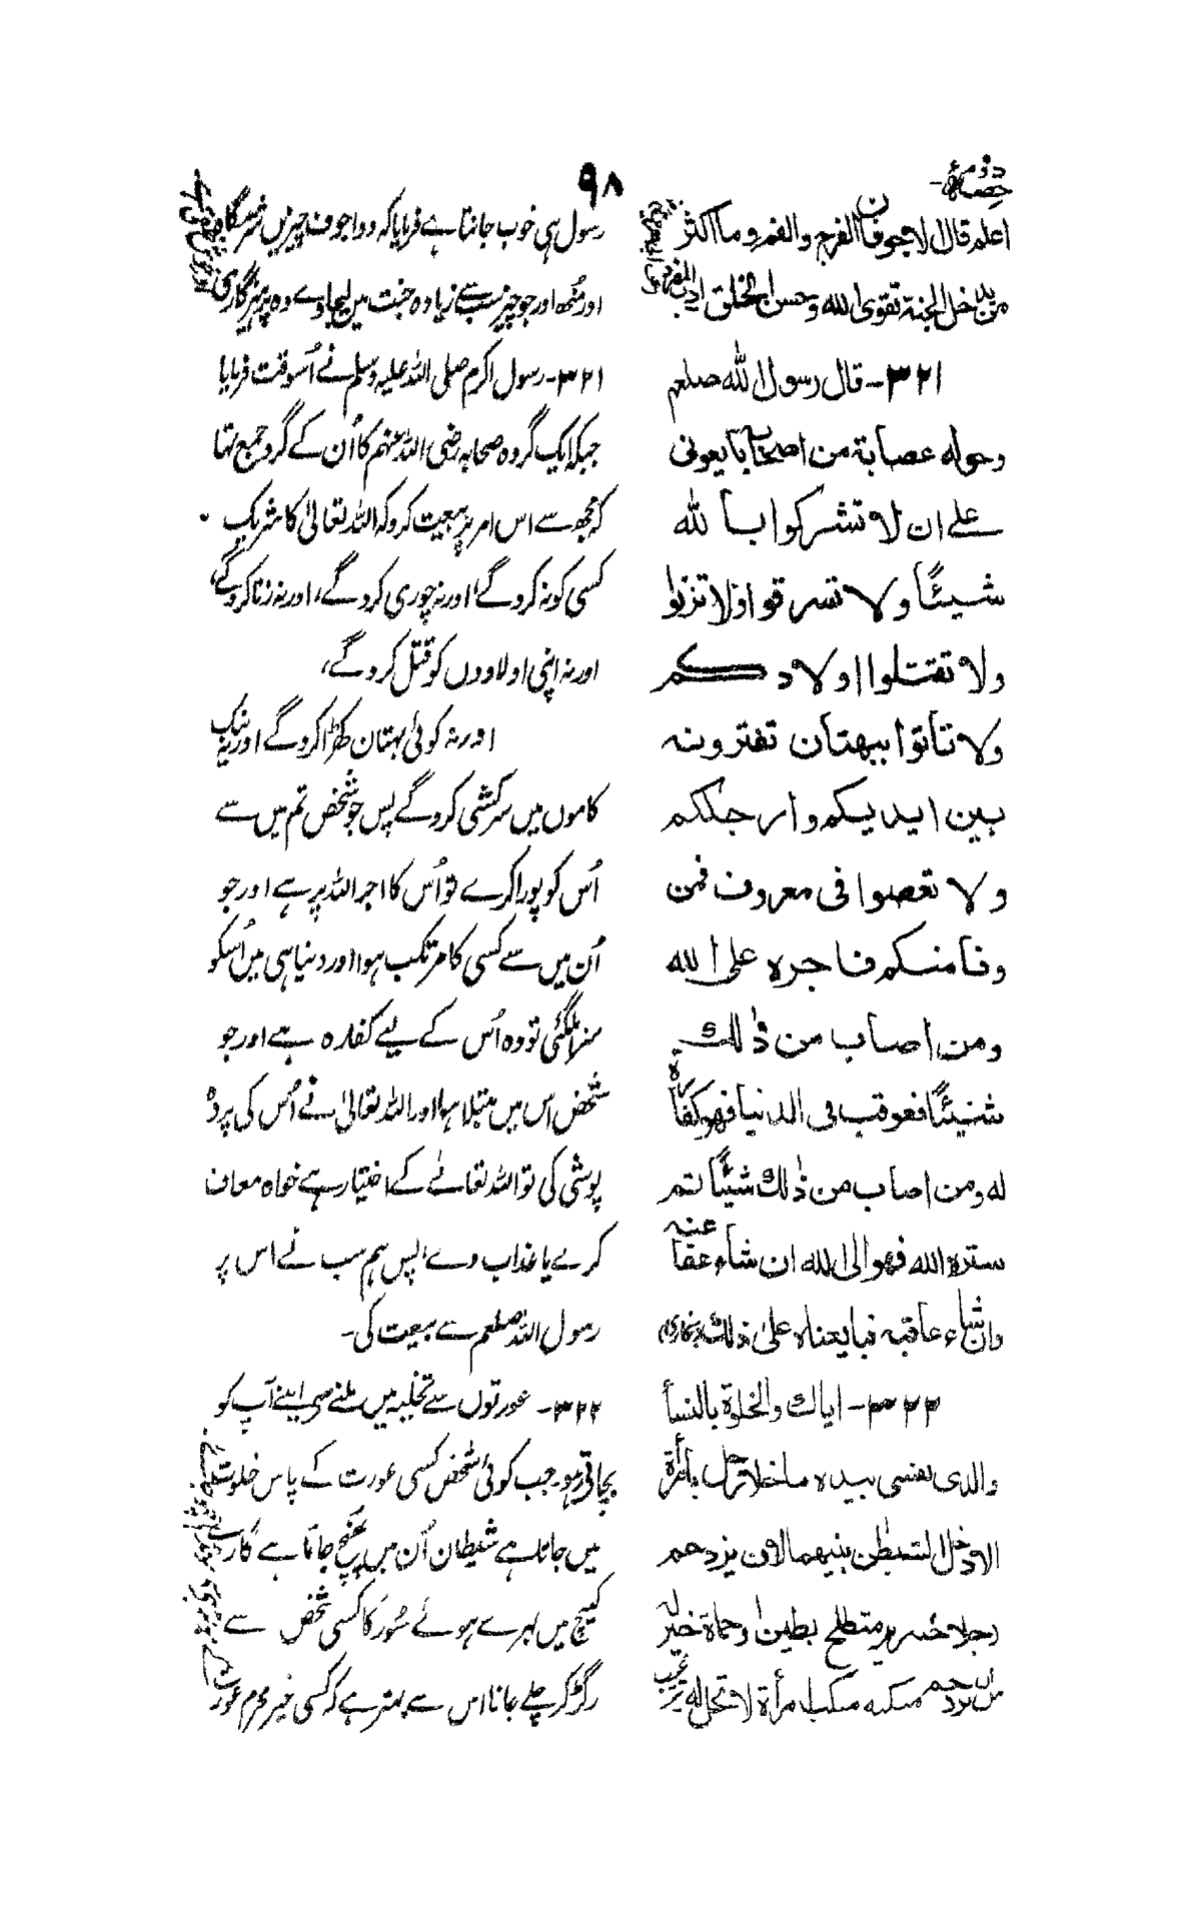 حصہ دوم
۹۸
اعلم قال لاجوفان الفرج والفم وما اکثر
من یدخل الجنة تقوی الله وحسن الخلق ادب المفرد
۳۲۱- قال رسول الله صلعم
وحوله عصابة من اصحابه بایعونی
علی ان لا تشرکوا بالله
شیئًا ولا تسرقوا ولا تزنوا
ولا تقتلوا اولادکم
ولا تاتوا ببهتان تفترونه
بین ایدیکم وارجلکم
ولا تعصوا فی معروف فمن
وفا منکم فاجره علی الله
ومن اصاب من ذٰلک
شیئًا فعوقب فی الدنیا فهو کفارة
له ومن اصاب من ذٰلک شیئًا ثم
ستره الله فهو الی الله ان شاء عفا عنه
وان شاء عاقبه فبایعناه علیٰ ذلک (بخاری)
۳۲۲- ایاک والخلوة بالنساء
والذی نفسی بیده ما خلا رجل بامرأة
الا دخل الشیطٰن بینهما لان یزدحم
رجلا خنزیر متطلخ بطین او حماة خیر له
من ان یزدحم منکبه منکب امرأة لا تحل له
رسول ہی خوب جانتا ہے فرمایا کہ دو اجوف چیزیں شرمگاہ
اور منھ اور جو چیز سب سے زیادہ جنت میں لیجاوے وہ پرہیزگاری
۳۲۱- رسول اکرم صلی اللہ علیہ وسلم نے اُسوقت فرمایا
جبکہ ایک گروہ صحابہ رضی اللہ عنہم کا اُن کے گرد جمع تھا
کہ مجھ سے اس امر پر بیعت کرو کہ اللہ تعالیٰ کا شریک
کسی کو نہ کروگے، اور نہ چوری کروگے، اور نہ زنا کروگے،
اور نہ اپنی اولادوں کو قتل کروگے،
اور نہ کوئی بہتان کھڑا کروگے اور نہ نیک
کاموں میں سرکشی کروگے پس جو شخص تم میں سے
اُس کو پورا کرے تو اُس کا اجر اللہ پر ہے اور جو
اُن میں سے کسی کا مرتکب ہوا اور دنیا ہی میں اُسکو
سزا ملگئی تو وہ اُس کے لیے کفارہ ہے اور جو
شخص اس میں مبتلا ہوا اور اللہ تعالیٰ نے اُس کی پردہ
پوشی کی تو اللہ تعالےٰ کے اختیار ہے خواہ معاف
کرے یا عذاب دے، پس ہم سب نے اس پر
رسول اللہ صلعم سے بیعت کی۔
۳۲۲- عورتوں سے تخلیہ میں ملنے سے اپنے آپ کو
بچاتے رہو۔ جب کوئی شخص کسی عورت کے پاس خلوت
میں جاتا ہے شیطان اُن میں پہنچ جاتا ہے گارے
کیچ میں لبھرے ہوئے سُور کا کسی شخص سے
رگڑ کر چلے جانا اس سے بہتر ہے کہ کسی غیر محرم عورت